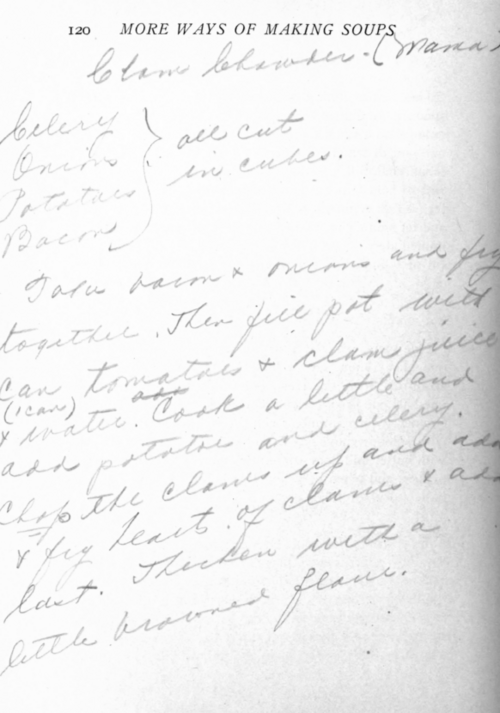 120 MORE WAYS OF MAKING SOUPS
Clam Chowder - (Mama)
Celery
Onions
Potatoes
Bacon
all cut
in cubes.
Take bacon & onions and fry
together. Then fill pot with
can tomatoes & clam juice
(1 can)
& water. Cook a little and
add potatoes and celery.
Chop the clams up and add
& fry heart of clams & add
last. Thicken with a
little browned flour.